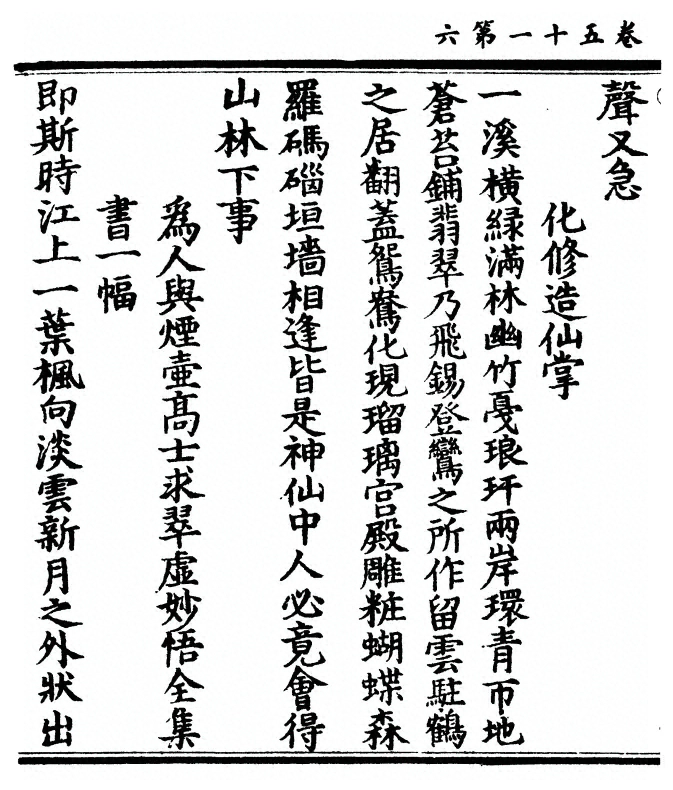 卷五十一第六
聲又急
化修造仙掌
一溪横緑滿林幽竹戞琅玕兩岸環青帀地
蒼苔鋪翡翠乃飛錫登鸞之所作留雲駐鶴
之居翻蓋鴛鴦化現瑠璃宫殿雕粧蝴蝶森
羅碼碯垣墻相逢皆是神仙中人必竟會得
山林下事
爲人與煙壷髙士求翠虚妙悟全集
書一幅
即斯時江上一葉楓向淡雲新月之外狀出